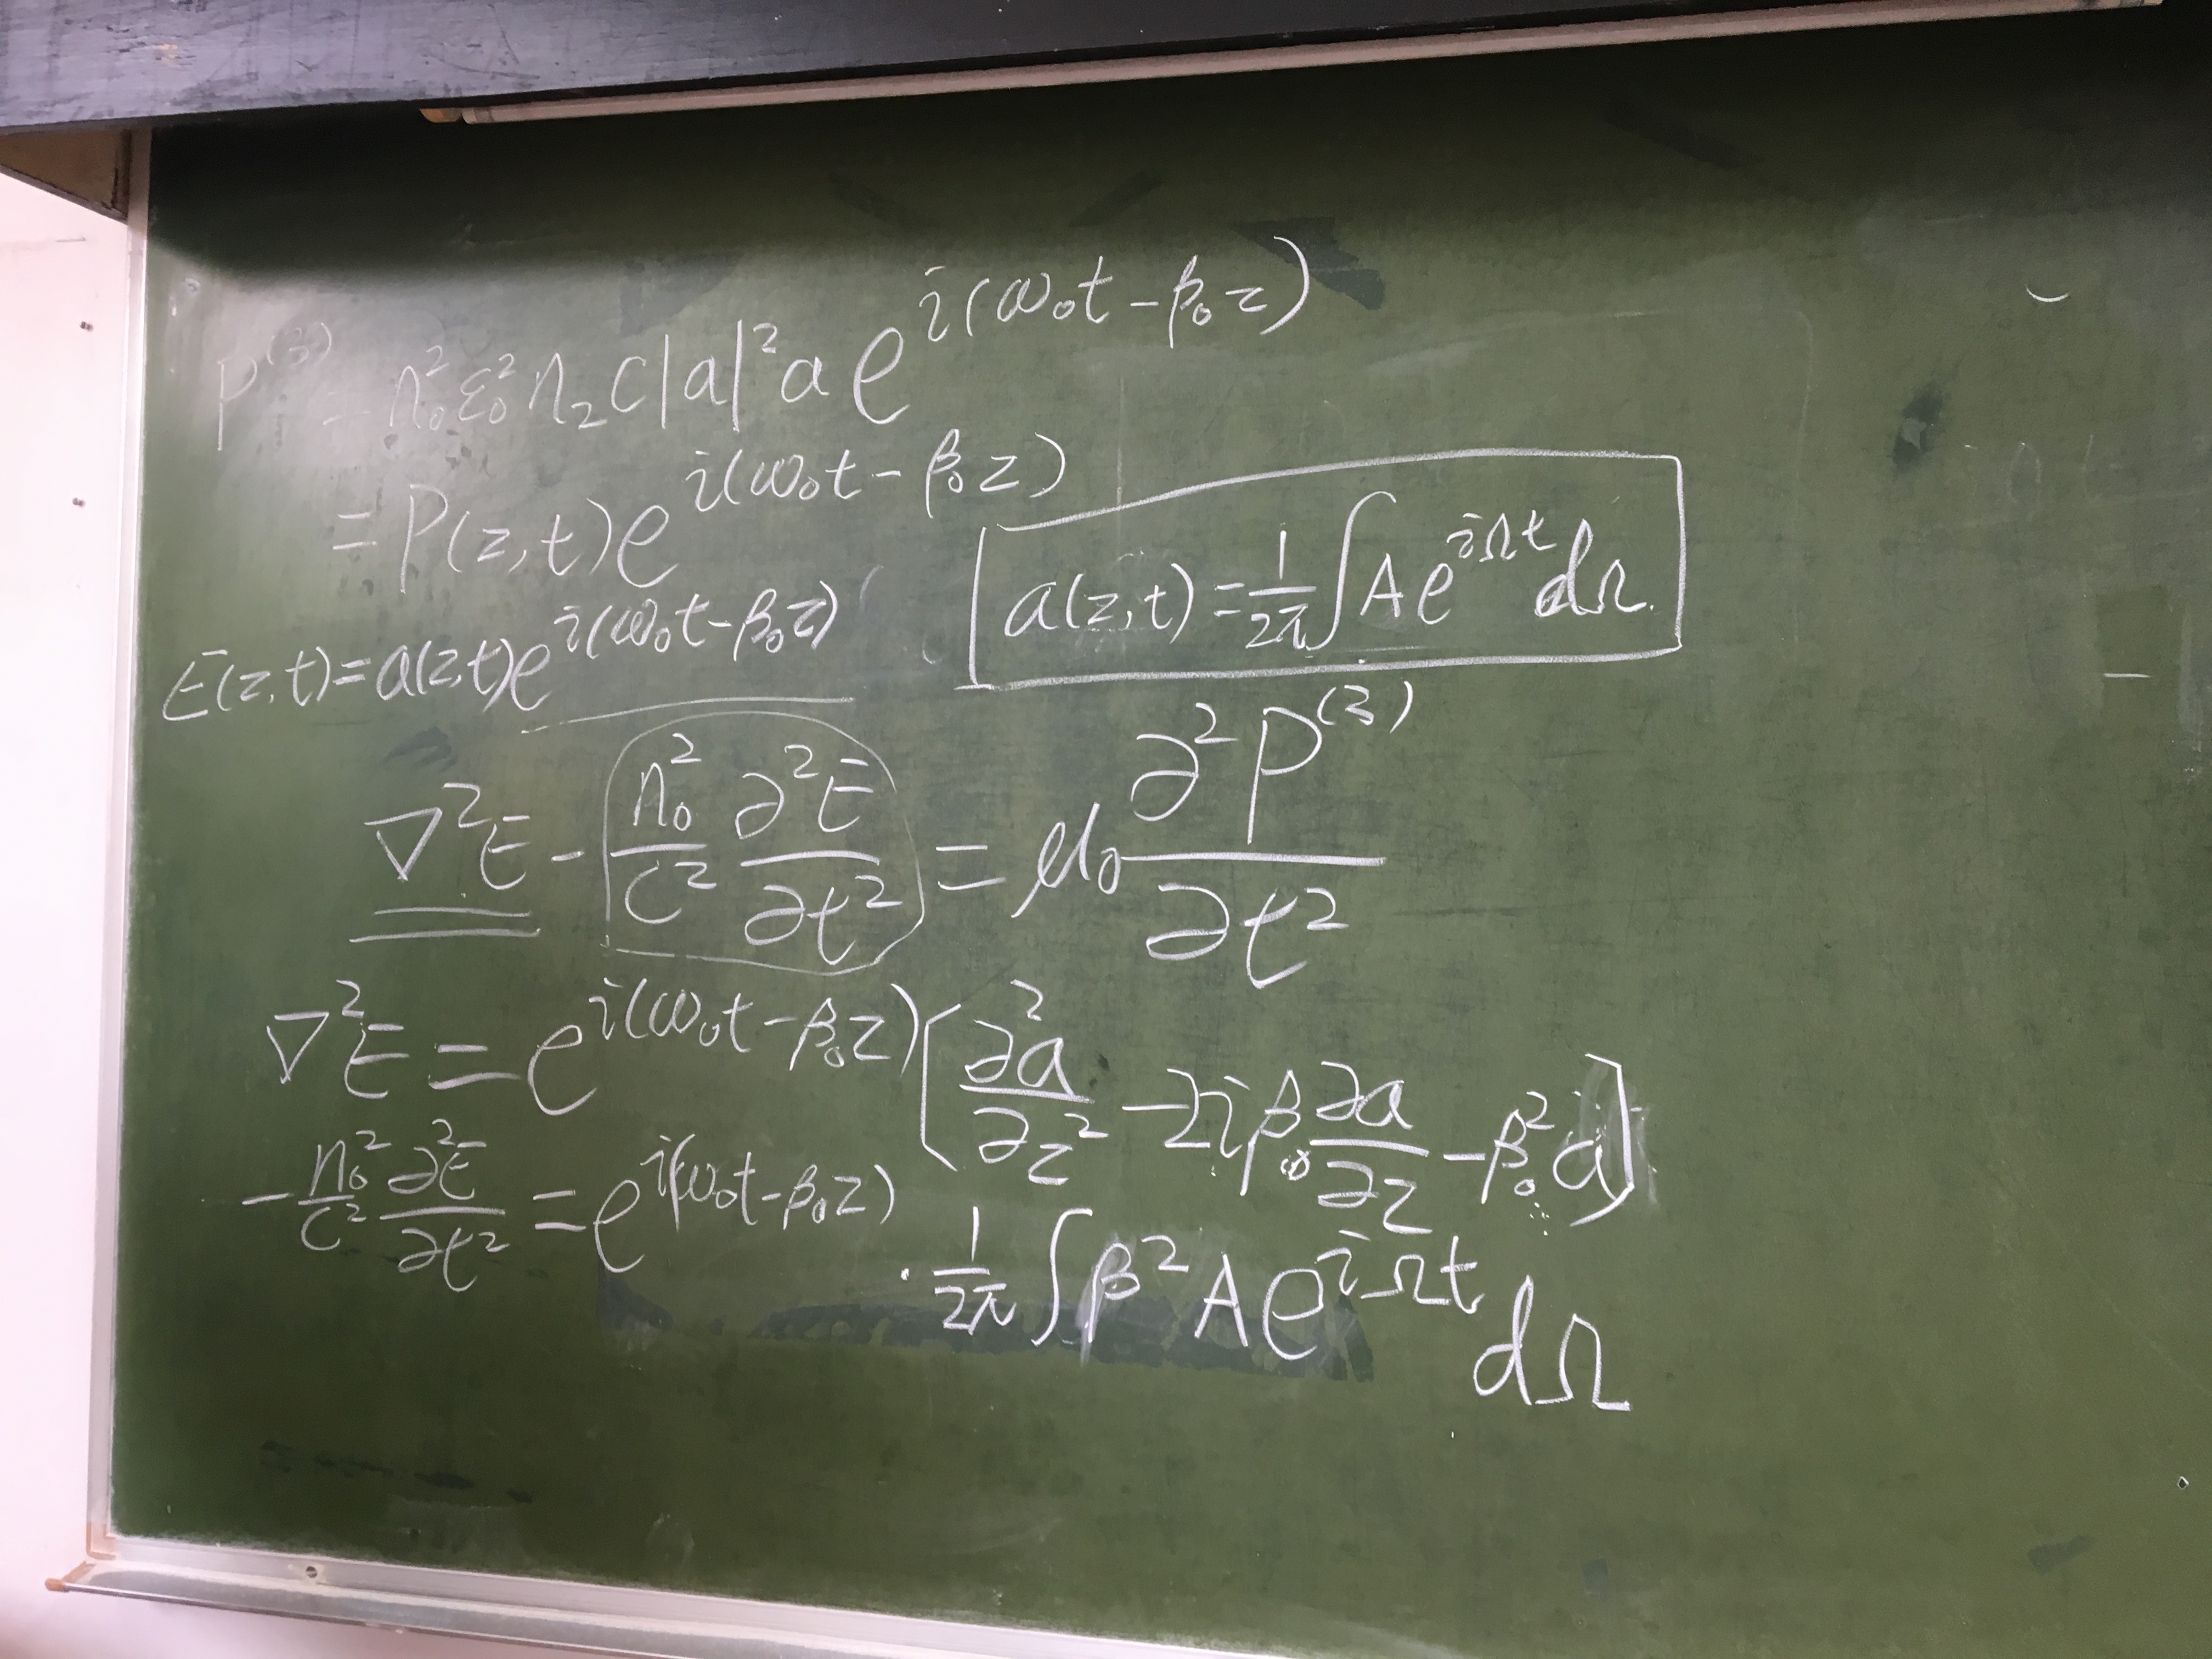 P^{(3)} = n_0^2 ε_0^2 n_2 c|a|^2 a e^{i(ω_0t - β_0z)}
= P(z,t)e^{i(ω_0t - β_0z)}
a(z,t) = \frac{1}{2π}∫Ae^{iΩt}dΩ
E(z,t)=a(z,t)e^{i(ω_0t-β_0z)}
∇^2E - \frac{n_0^2}{c^2}\frac{∂^2E}{∂t^2} = μ_0\frac{∂^2P^{(3)}}{∂t^2}
∇^2E = e^{i(ω_0t-β_0z)}(\frac{∂^2a}{∂z^2} - 2iβ_0\frac{∂a}{∂z} - β_0^2a)
-\frac{n_0^2}{c^2}\frac{∂^2E}{∂t^2} = e^{i(ω_0t-β_0z)}
·\frac{1}{2π}∫β^2Ae^{iΩt}dΩ